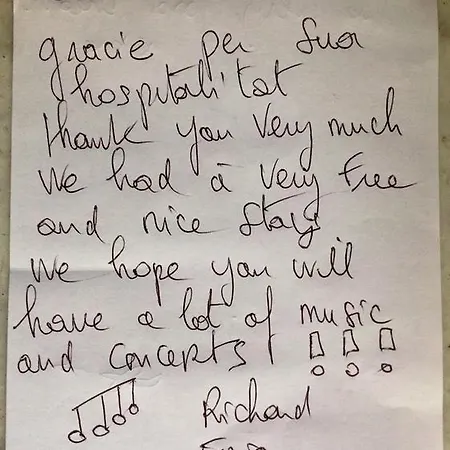 gracie per sua
hospitalitat
thank you very much
we had a very free
and nice stay
we hope you will
have a lot of music
and concerts ! ! ! !
Richard